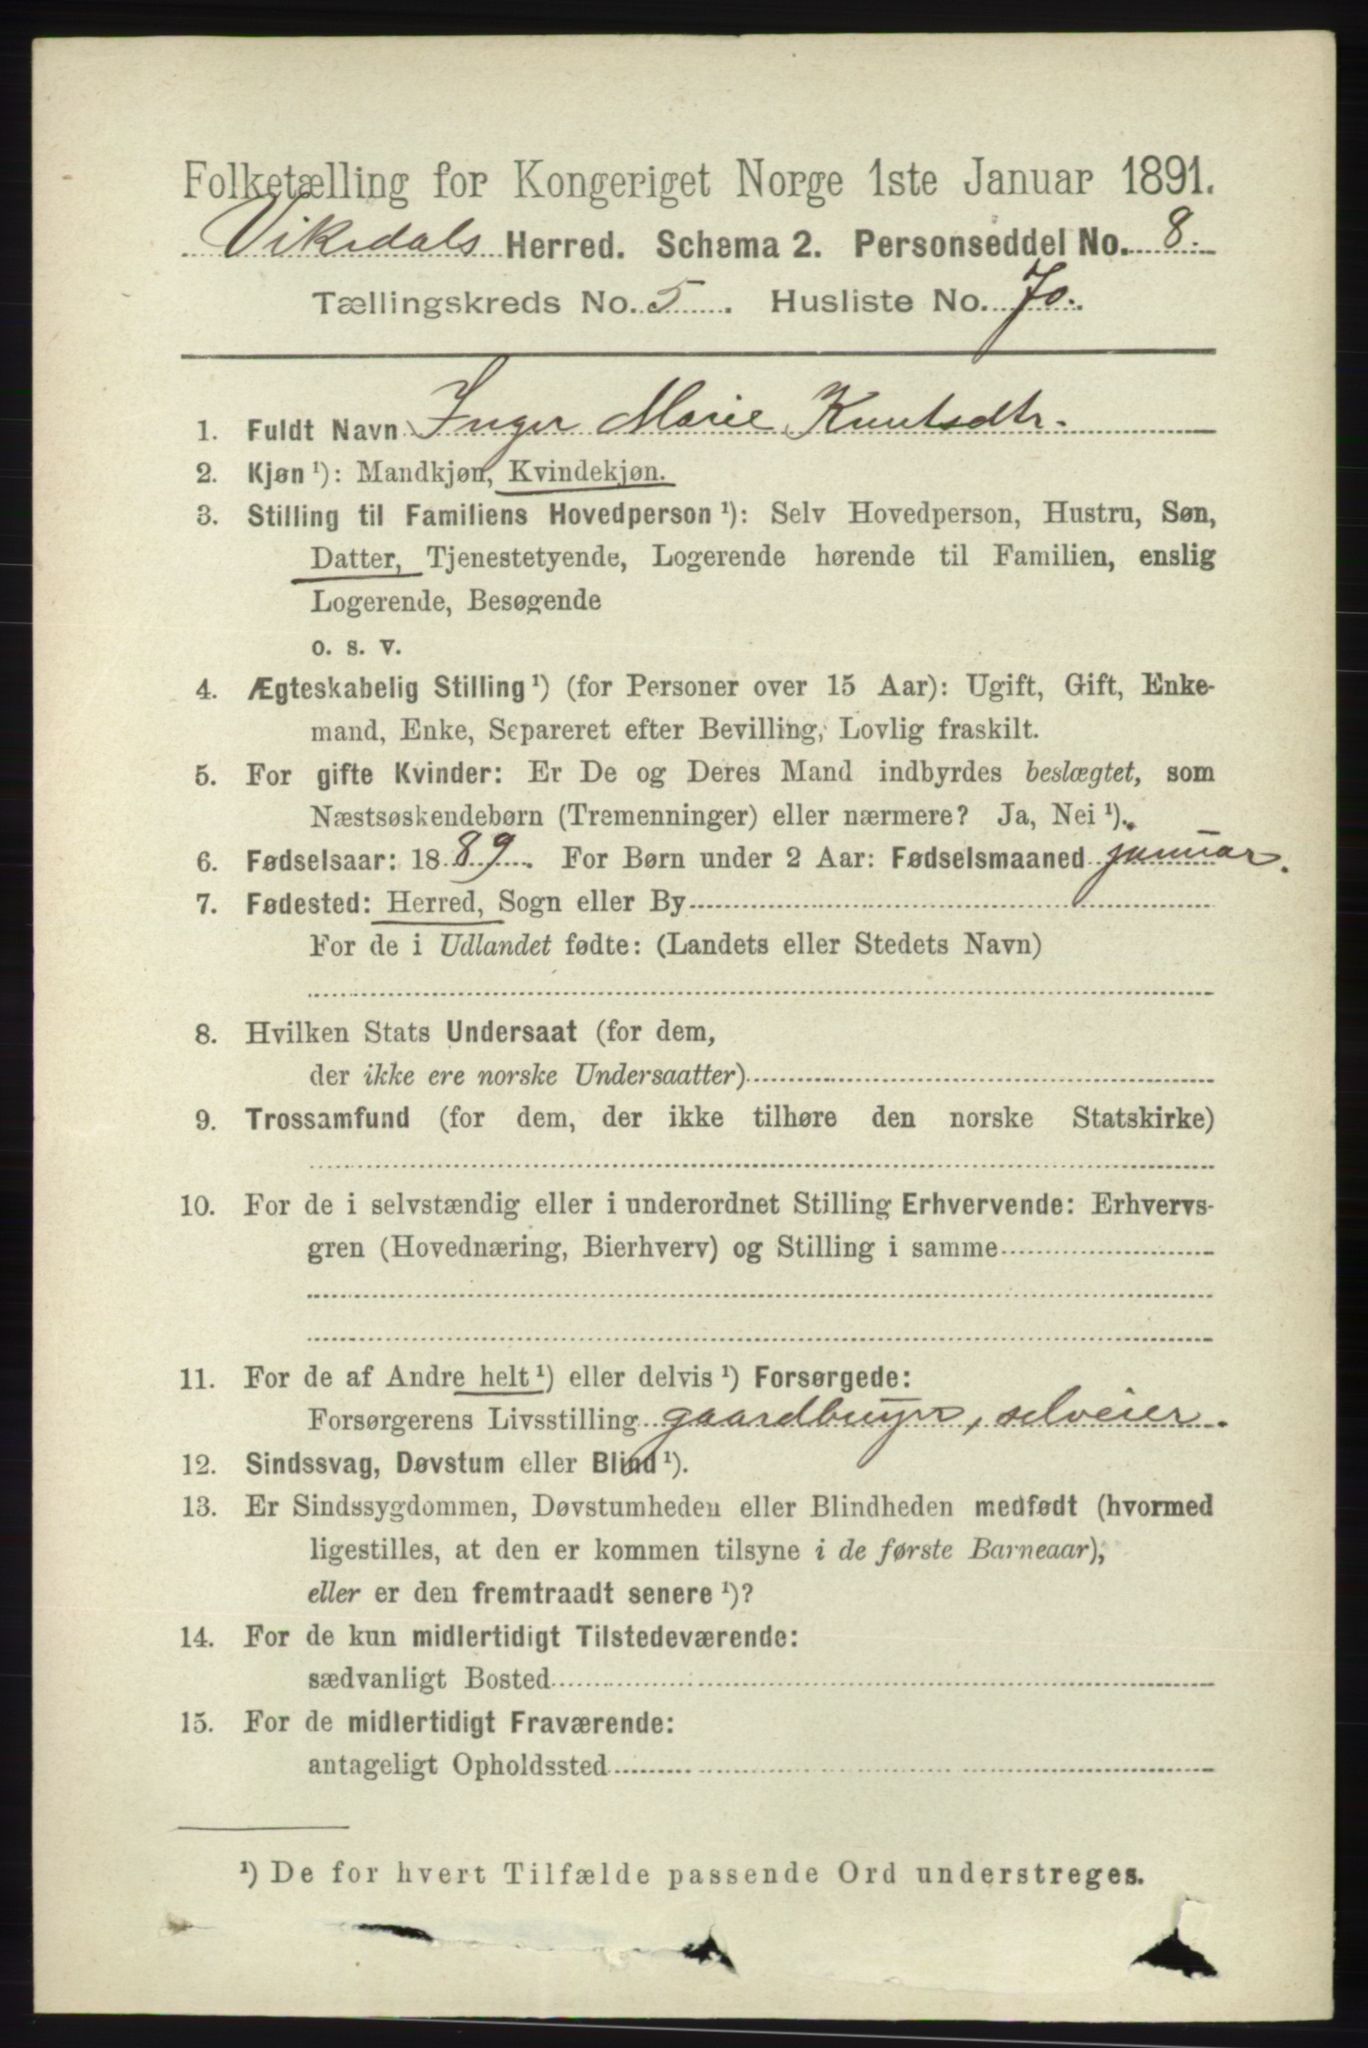 Folketælling for Kongeriget Norge 1ste Januar 1891.
Vikedals Herred. Schema 2. Personseddel No. 8.
Tællingskreds No. 5. Husliste No. 70.
1. Fuldt Navn Inger Marie Knutsdtr.
2. Kjøn ¹): Mandkjøn, Kvindekjøn.
3. Stilling til Familiens Hovedperson ¹): Selv Hovedperson, Hustru, Søn,
Datter, Tjenestetyende, Logerende hørende til Familien, enslig
Logerende, Besøgende
o. s. v.
4. Ægteskabelig Stilling ¹) (for Personer over 15 Aar): Ugift, Gift, Enke-
mand, Enke, Separeret efter Bevilling, Lovlig fraskilt.
5. For gifte Kvinder: Er De og Deres Mand indbyrdes beslægtet, som
Næstsøskendebørn (Tremenninger) eller nærmere? Ja, Nei ¹).
6. Fødselsaar: 1889. For Børn under 2 Aar: Fødselsmaaned januar.
7. Fødested: Herred, Sogn eller By
For de i Udlandet fødte: (Landets eller Stedets Navn)
8. Hvilken Stats Undersaat (for dem,
der ikke ere norske Undersaatter)
9. Trossamfund (for dem, der ikke tilhøre den norske Statskirke)
10. For de i selvstændig eller i underordnet Stilling Erhvervende: Erhvervs-
gren (Hovednæring, Bierhverv) og Stilling i samme
11. For de af Andre helt ¹) eller delvis ¹) Forsørgede:
Forsørgerens Livsstilling gaardbruger, selveier.
12. Sindssvag, Døvstum eller Blind ¹).
13. Er Sindssygdommen, Døvstumheden eller Blindheden medfødt (hvormed
ligestilles, at den er kommen tilsyne i de første Barneaar),
eller er den fremtraadt senere ¹)?
14. For de kun midlertidigt Tilstedeværende:
sædvanligt Bosted
15. For de midlertidigt Fraværende:
antageligt Opholdssted
¹) De for hvert Tilfælde passende Ord understreges.